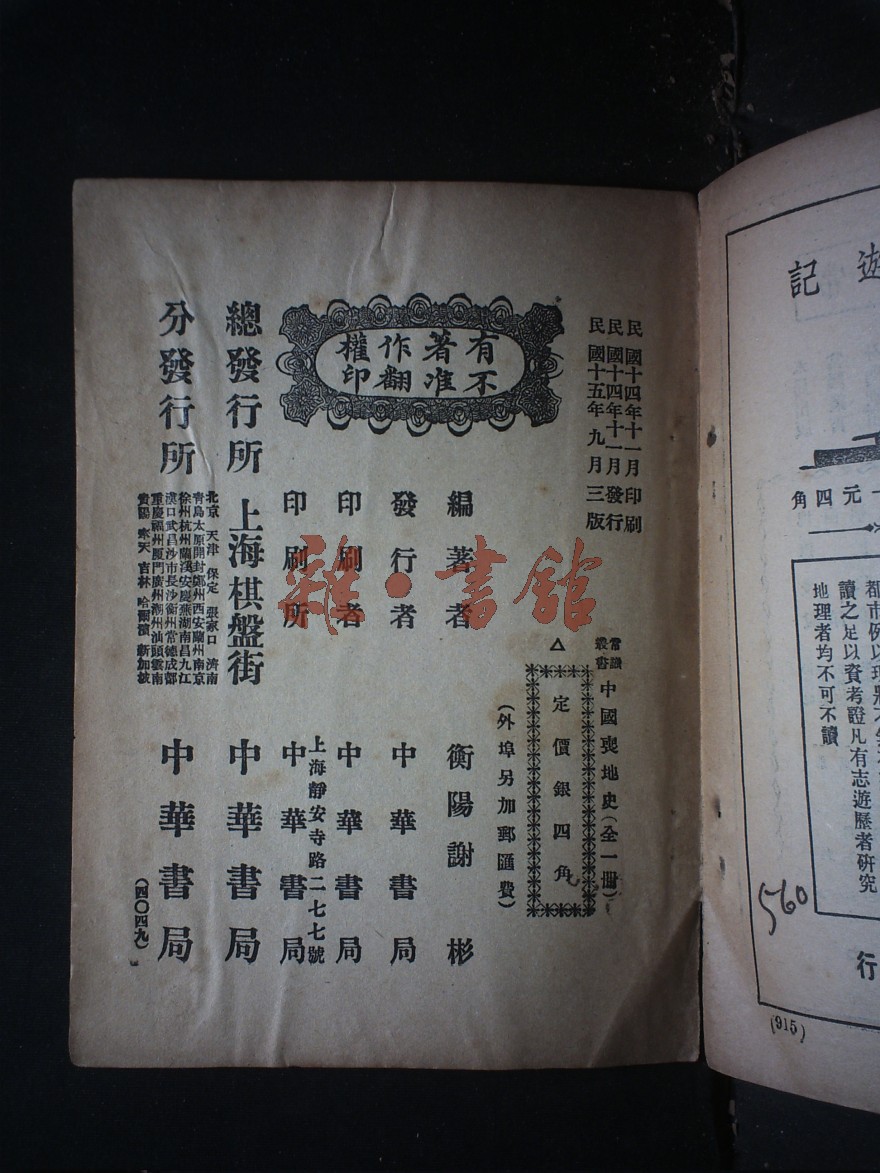 民國十四年十一月印刷
民國十四年十一月發行
民國十五年九月三版
有著作權
不准翻印
常識叢書
中國喪地史(全一冊)
△
定價銀四角
(外埠另加郵匯費)
編著者 衡陽謝彬
發行者 中華書局
印刷者 中華書局
上海靜安寺路二七七號
印刷所 中華書局
總發行所 上海棋盤街 中華書局
分發行所
北京 天津 保定 張家口 濟南
青島太原開封鄭州西安蘭州南京
徐州杭州蘭溪安慶蕪湖南昌九江
漢口武昌沙市長沙衡州常德成都
重慶福州廈門廣州潮州汕頭雲南
貴陽 奉天 吉林 哈爾濱 新加坡
中華書局
(四〇四九)
雜·書館
遊記
元四角
讀之足以資考證凡有志遊歷者研究
地理者均不可不讀
行
560
(915)